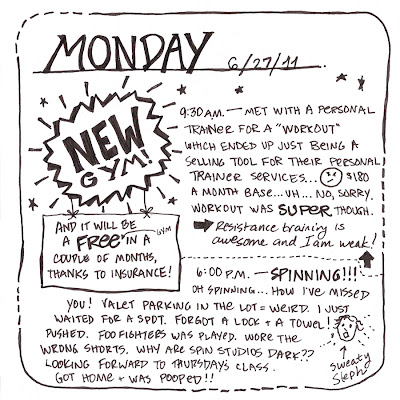 MONDAY 6/27/11
NEW
GYM!
AND IT WILL BE
A FREE GYM IN A
COUPLE OF MONTHS,
THANKS TO INSURANCE!
9:30 A.M. — MET WITH A PERSONAL
TRAINER FOR A "WORKOUT"
WHICH ENDED UP JUST BEING A
SELLING TOOL FOR THEIR PERSONAL
TRAINER SERVICES... $180
A MONTH BASE... UH... NO, SORRY.
WORKOUT WAS SUPER THOUGH.
→ Resistance training is
awesome and I am weak!
6:00 P.M. — SPINNING!!!
OH SPINNING... HOW I'VE MISSED
YOU! VALET PARKING IN THE LOT = WEIRD. I JUST
WAITED FOR A SPOT. FORGOT A LOCK + A TOWEL!
PUSHED. FOO FIGHTERS WAS PLAYED. WORE THE
WRONG SHORTS. WHY ARE SPIN STUDIOS DARK??
LOOKING FORWARD TO THURSDAY'S CLASS.
GOT HOME + WAS POOPED!!
sweaty
Steph